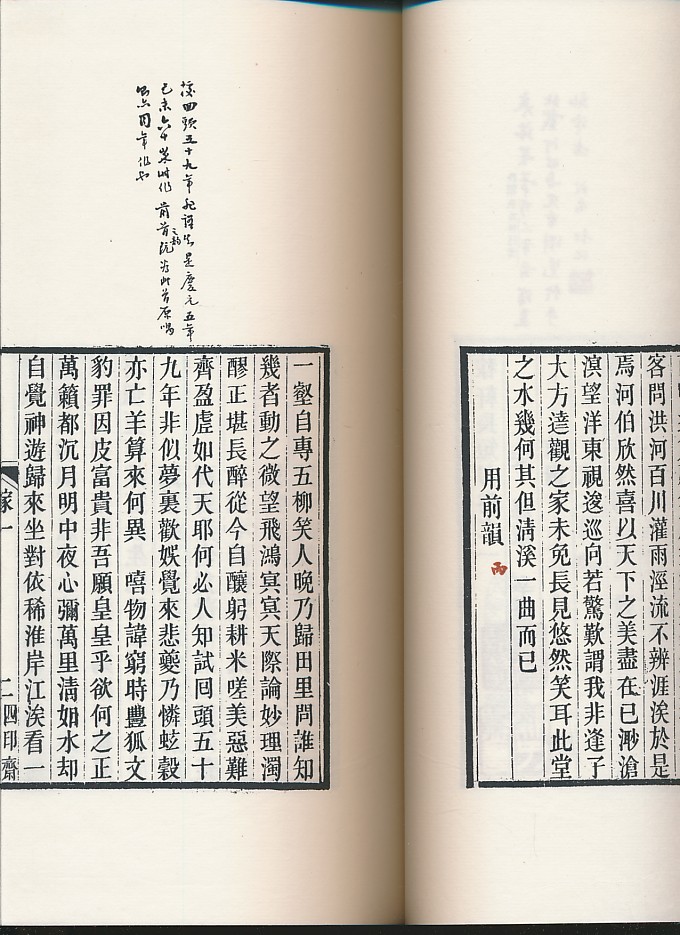 客問洪河百川灌雨涇流不辨涯涘於是
焉河伯欣然喜以天下之美盡在已渺滄
溟望洋東視逡巡向若驚歎謂我非逢子
大方達觀之家未免長見悠然笑耳此堂
之水幾何其但淸溪一曲而已
用前韻
丙
回頭五十九年 是慶元五年
己未六十歲時作 前首 之韵 此首原唱
同年作也
一壑自專五柳笑人晚乃歸田里問誰知
幾者動之微望飛鴻冥冥天際論妙理濁
醪正堪長醉從今自釀躬耕米嗟美惡難
齊盈虛如代天耶何必人知試囘頭五十
九年非似夢裏歡娛覺來悲夔乃憐蚿穀
亦亡羊算來何異 嘻物諱窮時豐狐文
豹罪因皮富貴非吾願皇皇乎欲何之正
萬籟都沉月明中夜心彌萬里淸如水却
自覺神遊歸來坐對依稀淮岸江涘看一
稼一
二
四印齋